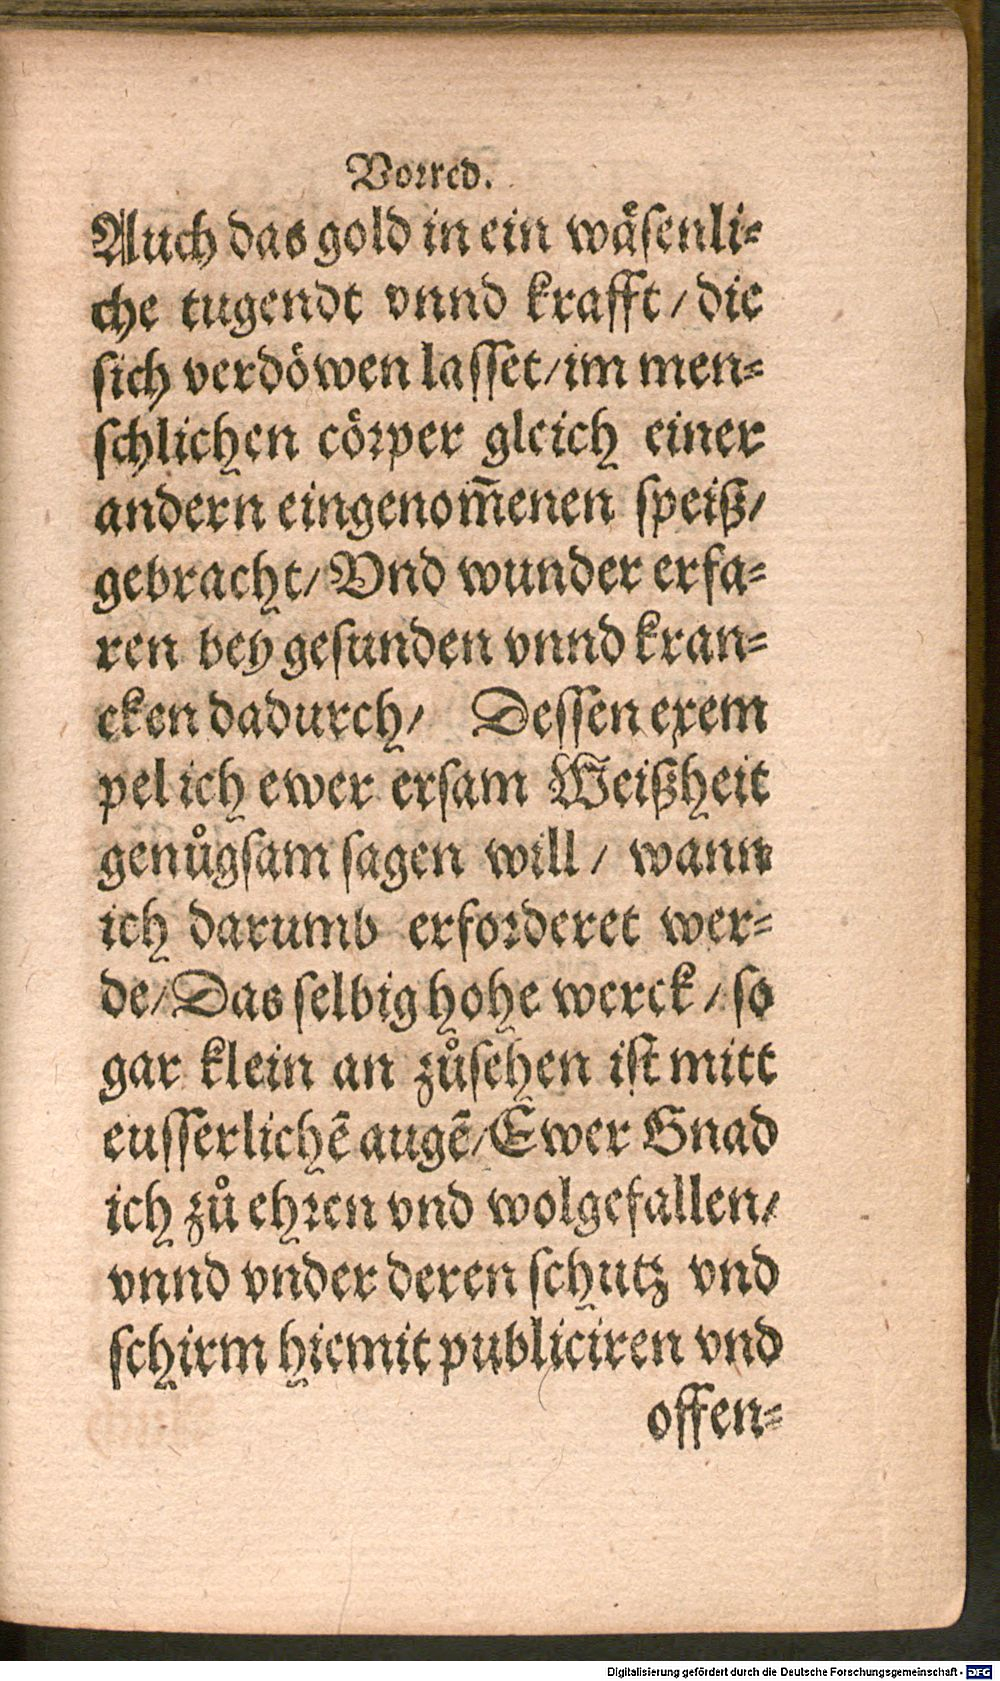 Vorred.
Auch das gold in ein wåſenli-
che tugendt vnnd krafft / die
ſich verdöwen laſſet / im men-
ſchlichen cörper gleich einer
andern eingenom̅enen ſpeiß /
gebracht / Vnd wunder erfa-
ren bey geſunden vnnd kran-
cken dadurch / Deſſen exem
pel ich ewer erſam Weißheit
genůgſam ſagen will / wann
ich darumb erforderet wer-
de / Das ſelbig hohe werck / ſo
gar klein an zůſehen iſt mitt
euſſerlichẽ augẽ / Ewer Gnad
ich zů ehren vnd wolgefallen /
vnnd vnder deren ſchutz vnd
ſchirm hiemit publiciren vnd
offen-
Digitalisierung gefördert durch die Deutsche Forschungsgemeinschaft - DFG